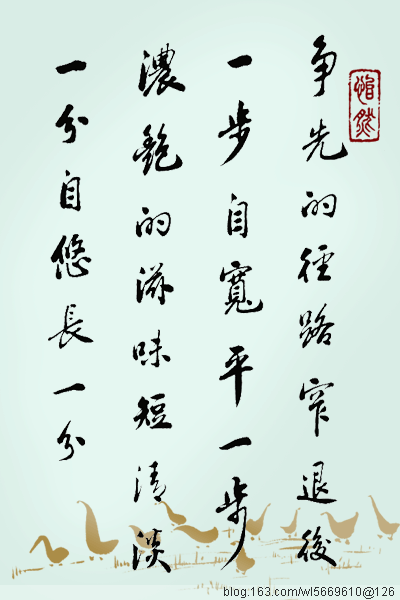 争先的徑路窄退後
一步自寬平一步
濃艷的滋味短清淡
一分自悠長一分
blog.163.com/wl5669610@126